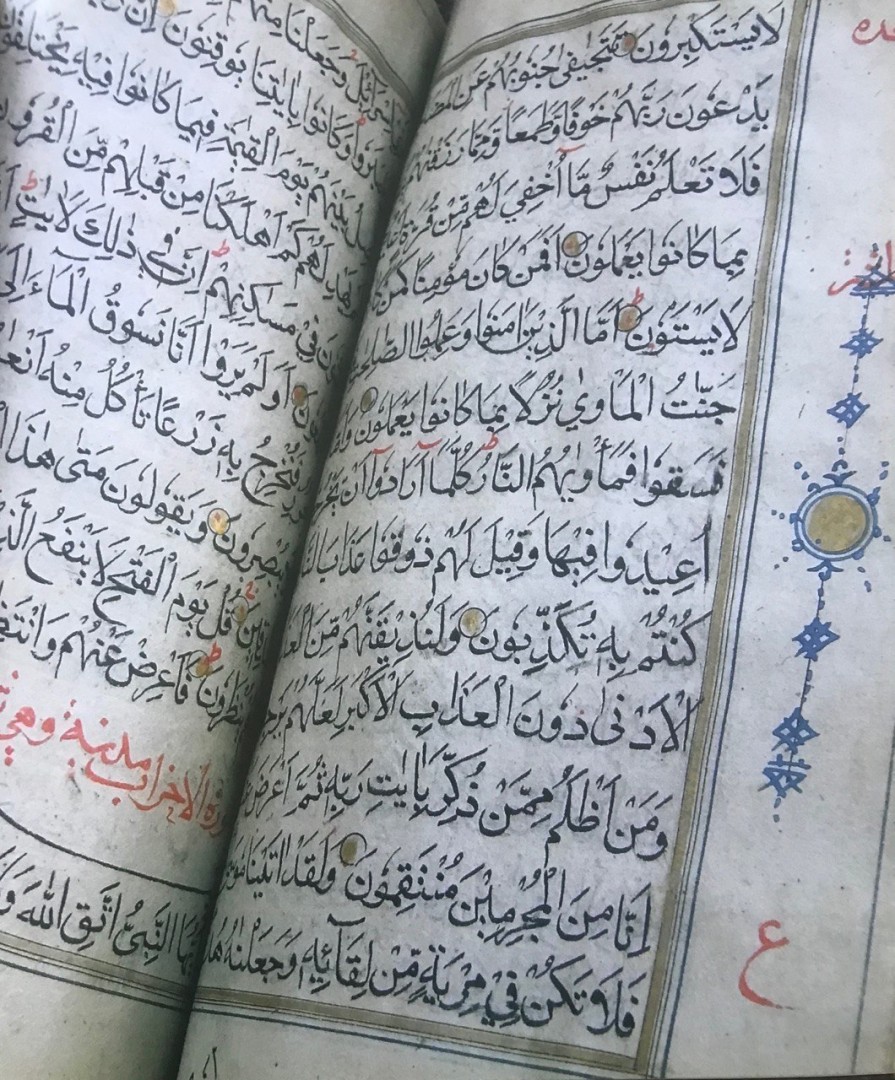 لا يَسْتَكْبِرُونَ تَتَجَافٰى جُنُوبُهُمْ عَنِ
يَدْعُونَ رَبَّهُمْ خَوْفًا وَطَمَعًا وَمِمَّا رَزَقْنٰهُمْ
فَلَا تَعْلَمُ نَفْسٌ مَّا أُخْفِيَ لَهُمْ مِّنْ قُرَّةِ
بِمَا كَانُوا يَعْمَلُونَ اَفَمَنْ كَانَ مُؤْمِنًا كَمَنْ
لَا يَسْتَوٗنَ اَمَّا الَّذِينَ اٰمَنُوا وَعَمِلُوا الصَّالِحٰتِ
جَنّٰتُ الْمَاْوٰي نُزُلًا بِمَا كَانُوا يَعْمَلُونَ
فَسَقُوا فَمَاْوٰيهُمُ النَّارُ كُلَّمَا اَرَادُوٓا اَنْ
اُعِيدُوا فِيهَا وَقِيلَ لَهُمْ ذُوقُوا عَذَابَ
كُنْتُمْ بِهٖ تُكَذِّبُونَ وَلَنُذِيقَنَّهُمْ مِّنَ
الْاَدْنٰى دُونَ الْعَذَابِ الْاَكْبَرِ لَعَلَّهُمْ
وَمَنْ اَظْلَمُ مِمَّنْ ذُكِّرَ بِاٰيٰتِ رَبِّهٖ ثُمَّ اَعْرَضَ
اِنَّا مِنَ الْمُجْرِمِينَ مُنْتَقِمُونَ وَلَقَدْ اٰتَيْنَا
فَلَا تَكُنْ فِي مِرْيَةٍ مِّنْ لِقَآئِهٖ وَجَعَلْنٰهُ
ع
وَجَعَلْنَا مِنْهُمْ
وَكَانُوا بِاٰيٰتِنَا يُوقِنُونَ اِنَّ
بَيْنَهُمْ يَوْمَ الْقِيٰمَةِ فِيمَا كَانُوا فِيهِ يَخْتَلِفُونَ
لَهُمْ كَمْ اَهْلَكْنَا مِنْ قَبْلِهِمْ مِّنَ الْقُرُونِ
فِي مَسَاكِنِهِمْ اِنَّ فِي ذٰلِكَ لَاٰيٰتٍ
اَوَلَمْ يَرَوْا اَنَّا نَسُوقُ الْمَآءَ اِلَى
فَنُخْرِجُ بِهٖ زَرْعًا تَأْكُلُ مِنْهُ
يُبْصِرُونَ وَيَقُولُونَ مَتٰى هٰذَا
قُلْ يَوْمَ الْفَتْحِ لَا يَنْفَعُ
فَاَعْرِضْ عَنْهُمْ وَانْتَظِرْ
الاحزاب مدنية وهي
النَّبِيُّ اتَّقِ اللّٰهَ